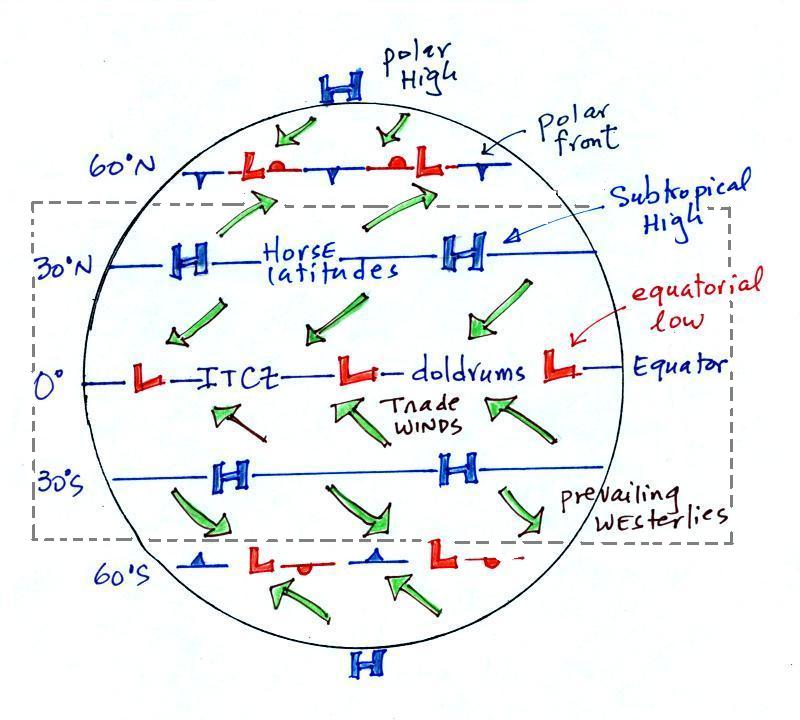 polar
High
H
polar
front
60°N
L
L
Subtropical
High
30°N
H
Horse
latitudes
H
equatorial
low
0°
L
ITCZ
L
doldrums
L
Equator
Trade
WINDS
30°S
H
H
prevailing
WEsterlies
60°S
L
L
H